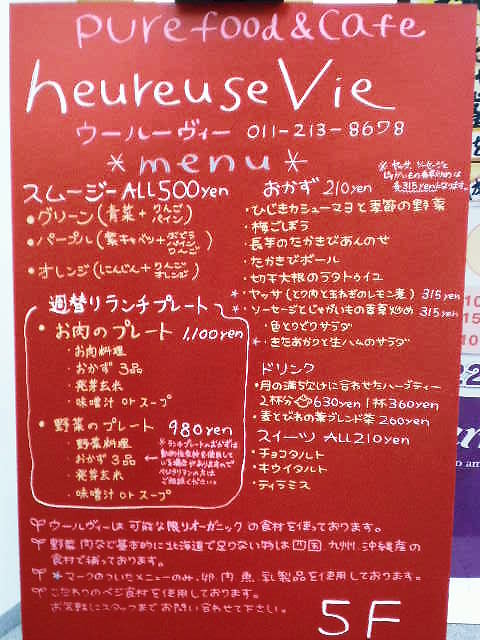 purefood&Cafe
heureuse Vie
ウールーヴィー 011-213-8678
*menu*
スムージー ALL500yen
・グリーン(青菜+りんご パイン)
・パープル(紫キャベツ+ぶどう パイン りんご)
・オレンジ(にんじん+りんご オレンジ)
週替りランチプレート
・お肉のプレート 1,100yen
・お肉料理
・おかず3品
・発芽玄米
・味噌汁 or スープ
・野菜のプレート 980yen
・野菜料理
・おかず3品 ←
・発芽玄米
・味噌汁 or スープ
※ランチプレートのおかずは
動物性食材を使用して
いる場合がありますので
ベジタリアンの方は
ご相談ください。
※ヤッサ、ソーセージと
じゃがいもの香草炒めは
各315yenとなります。
おかず 210yen
・ひじきカシューマヨと季節の野菜
・梅ごぼう
・長芋のたかきびあんのせ
・たかきびボール
・切干大根のラタトゥイユ
*・ヤッサ(とり肉と玉ねぎのレモン煮) 315yen
*・ソーセージとじゃがいもの香草炒め 315yen
・色とりどりサラダ
*・きたあかりと生ハムのサラダ
ドリンク
・月の満ち欠けに合わせたハーブティー
2杯分 630yen 1杯 360yen
・麦とびわの葉ブレンド茶 260yen
スイーツ ALL210yen
・チョコタルト
・キウイタルト
・ティラミス
ウールーヴィーは可能な限りオーガニックの食材を使っております。
野菜、肉など基本的に北海道で足りない物は四国、九州、沖縄産の
食材で補っております。
*マークのついたメニューのみ、卵、肉、魚、乳製品を使用しております。
こだわりのベジ食材を使用しております。
お気軽にスタッフまでお問い合わせて下さい。
5F